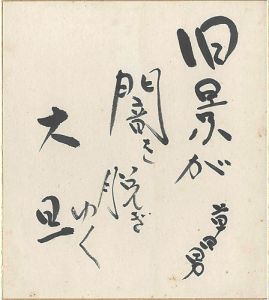 旧景が
闇を脱ぎ
ゆく
大旦
草田男